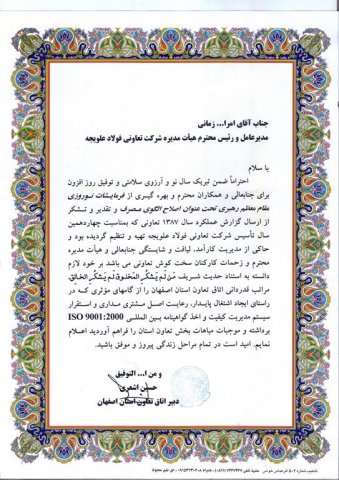 جناب آقای امرا... زمانی
مدیرعامل و رئیس محترم هیأت مدیره شرکت تعاونی فولاد علویجه
با سلام
احتراماً ضمن تبریک سال نو و آرزوی سلامتی و توفیق روز افزون
برای جنابعالی و همکاران محترم و بهره گیری از فرمایشات نوروزی
مقام معظم رهبری تحت عنوان اصلاح الگوی مصرف و تقدیر و تشکر
از ارسال گزارش عملکرد سال ۱۳۸۷ که بمناسبت چهاردهمین
سال تأسیس شرکت تعاونی فولاد علویجه تهیه و تنظیم گردیده بود و
حاکی از مدیریت کارآمد، لیاقت و شایستگی جنابعالی و هیأت مدیره
محترم و زحمات کارکنان سخت کوش تعاونی می باشد بر خود لازم
دانسته به استناد حدیث شریف مَن لَم یَشکُرِ المَخلوق لَم یَشکُرِ الخالِق
مراتب قدردانی اتاق تعاون استان اصفهان را از گامهای مؤثری که در
راستای ایجاد اشتغال پایدار، رعایت اصل مشتری مداری و استقرار
سیستم مدیریت کیفیت و اخذ گواهینامه بین المللی ISO 9001:2000
برداشته و موجبات مباهات بخش تعاون استان را فراهم آوردید اعلام
نمایم. امید است در تمام مراحل زندگی پیروز و موفق باشید.
و من ا... التوفیق
حسین اشعری
دبیر اتاق تعاون استان اصفهان